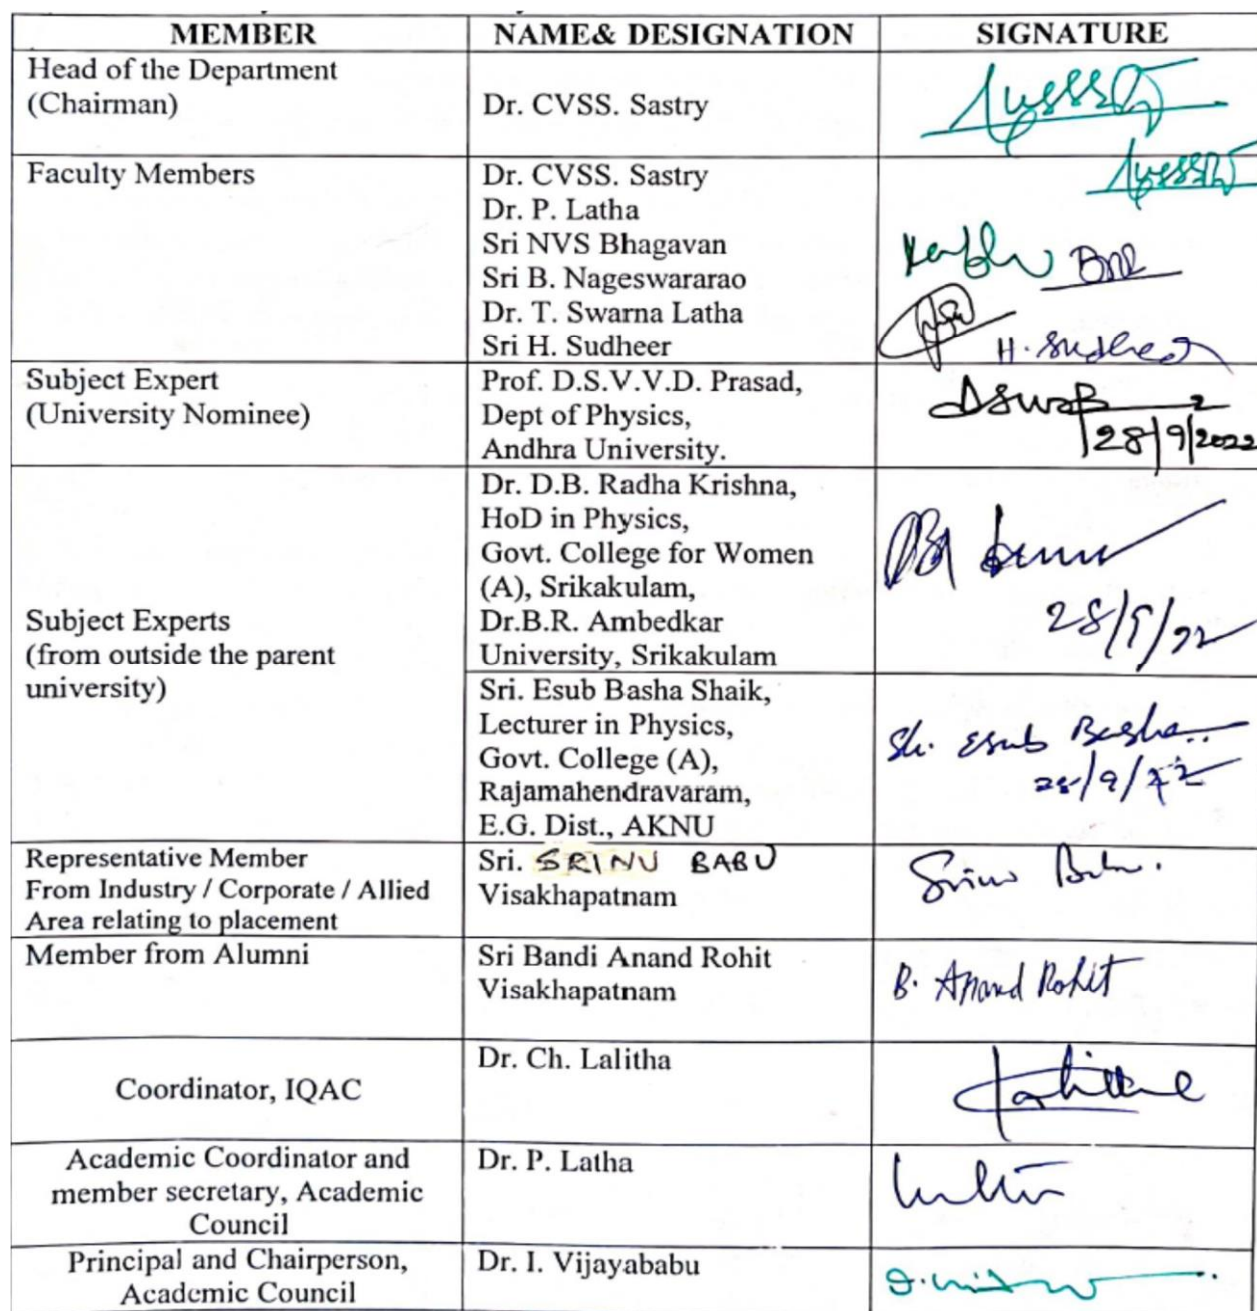 MEMBER NAME& DESIGNATION SIGNATURE
Head of the Department
(Chairman)
Dr. CVSS. Sastry
Faculty Members
Dr. CVSS. Sastry
Dr. P. Latha
Sri NVS Bhagavan
Sri B. Nageswararao
Dr. T. Swarna Latha
Sri H. Sudheer
H. Sudheer
Subject Expert
(University Nominee)
Prof. D.S.V.V.D. Prasad,
Dept of Physics,
Andhra University.
28/9/2022
Subject Experts
(from outside the parent
university)
Dr. D.B. Radha Krishna,
HoD in Physics,
Govt. College for Women
(A), Srikakulam,
Dr.B.R. Ambedkar
University, Srikakulam
28/9/22
Sri. Esub Basha Shaik,
Lecturer in Physics,
Govt. College (A),
Rajamahendravaram,
E.G. Dist., AKNU
Sk. Esub Basha
28/9/22
Representative Member
From Industry / Corporate / Allied
Area relating to placement
Sri. SRINU BABU
Visakhapatnam
Srinu Babu.
Member from Alumni
Sri Bandi Anand Rohit
Visakhapatnam
B. Anand Rohit
Coordinator, IQAC
Dr. Ch. Lalitha
Academic Coordinator and
member secretary, Academic
Council
Dr. P. Latha
Principal and Chairperson,
Academic Council
Dr. I. Vijayababu